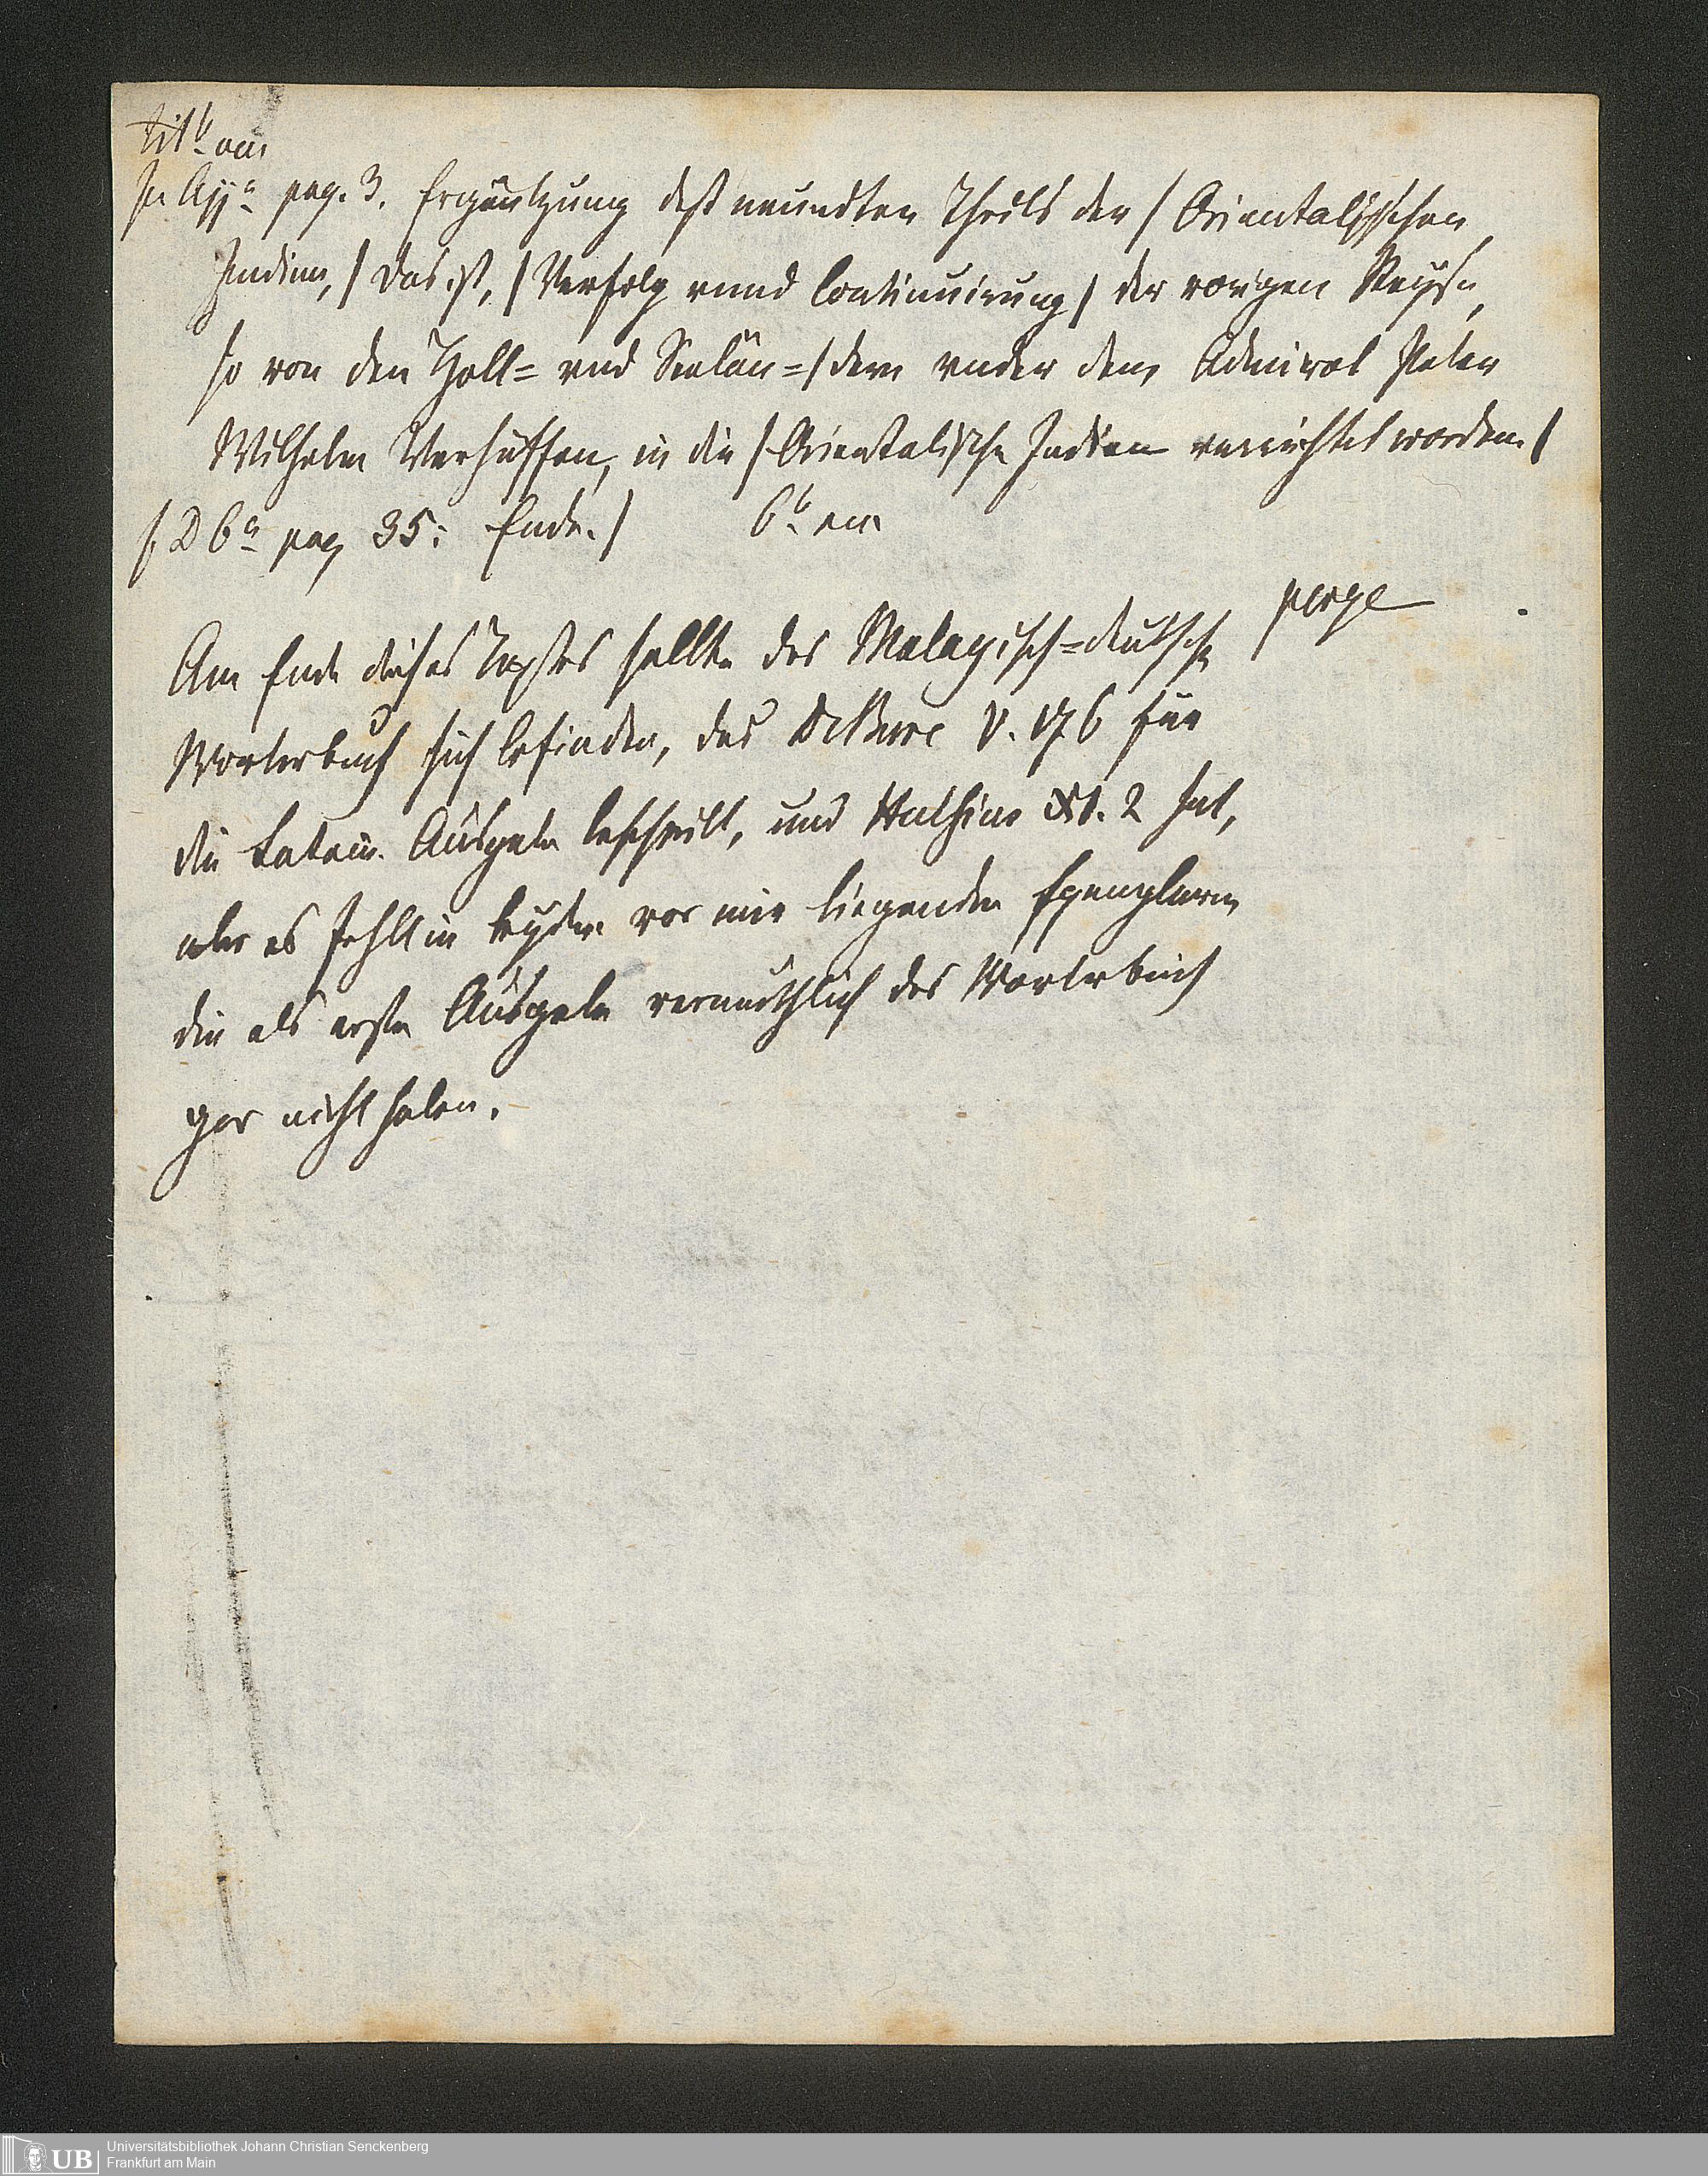 tit b. vac.
p. Aijª pag. 3. Ergäntzung deß neundten Theils der / Orientalisschen
Indien, / Das ist, / Verfolg vnnd Continuirung / der vorigen Reyse,
so von den Holl= vnd Seelän=/dern vnder dem Admiral Peter
Wilhelm Verhuffen, in die / Orientalische Indien verrichtet worden. /
p. D 6ª pag 35: Ende. / 6b. vac.
perge
Am Ende dieses Textes sollte das Malayisch=deutsche
Worterbuch sich befinden, das DeBure V. 176 für
die Latein. Ausgabe beschreibt, und Hulsius XI. 2 hat,
aber es fehlt in beyden vor mir liegenden Exemplaren
die als erste Ausgabe vermuthlich das Worterbuch
gar nicht haben.
UB
Universitätsbibliothek Johann Christian Senckenberg
Frankfurt am Main